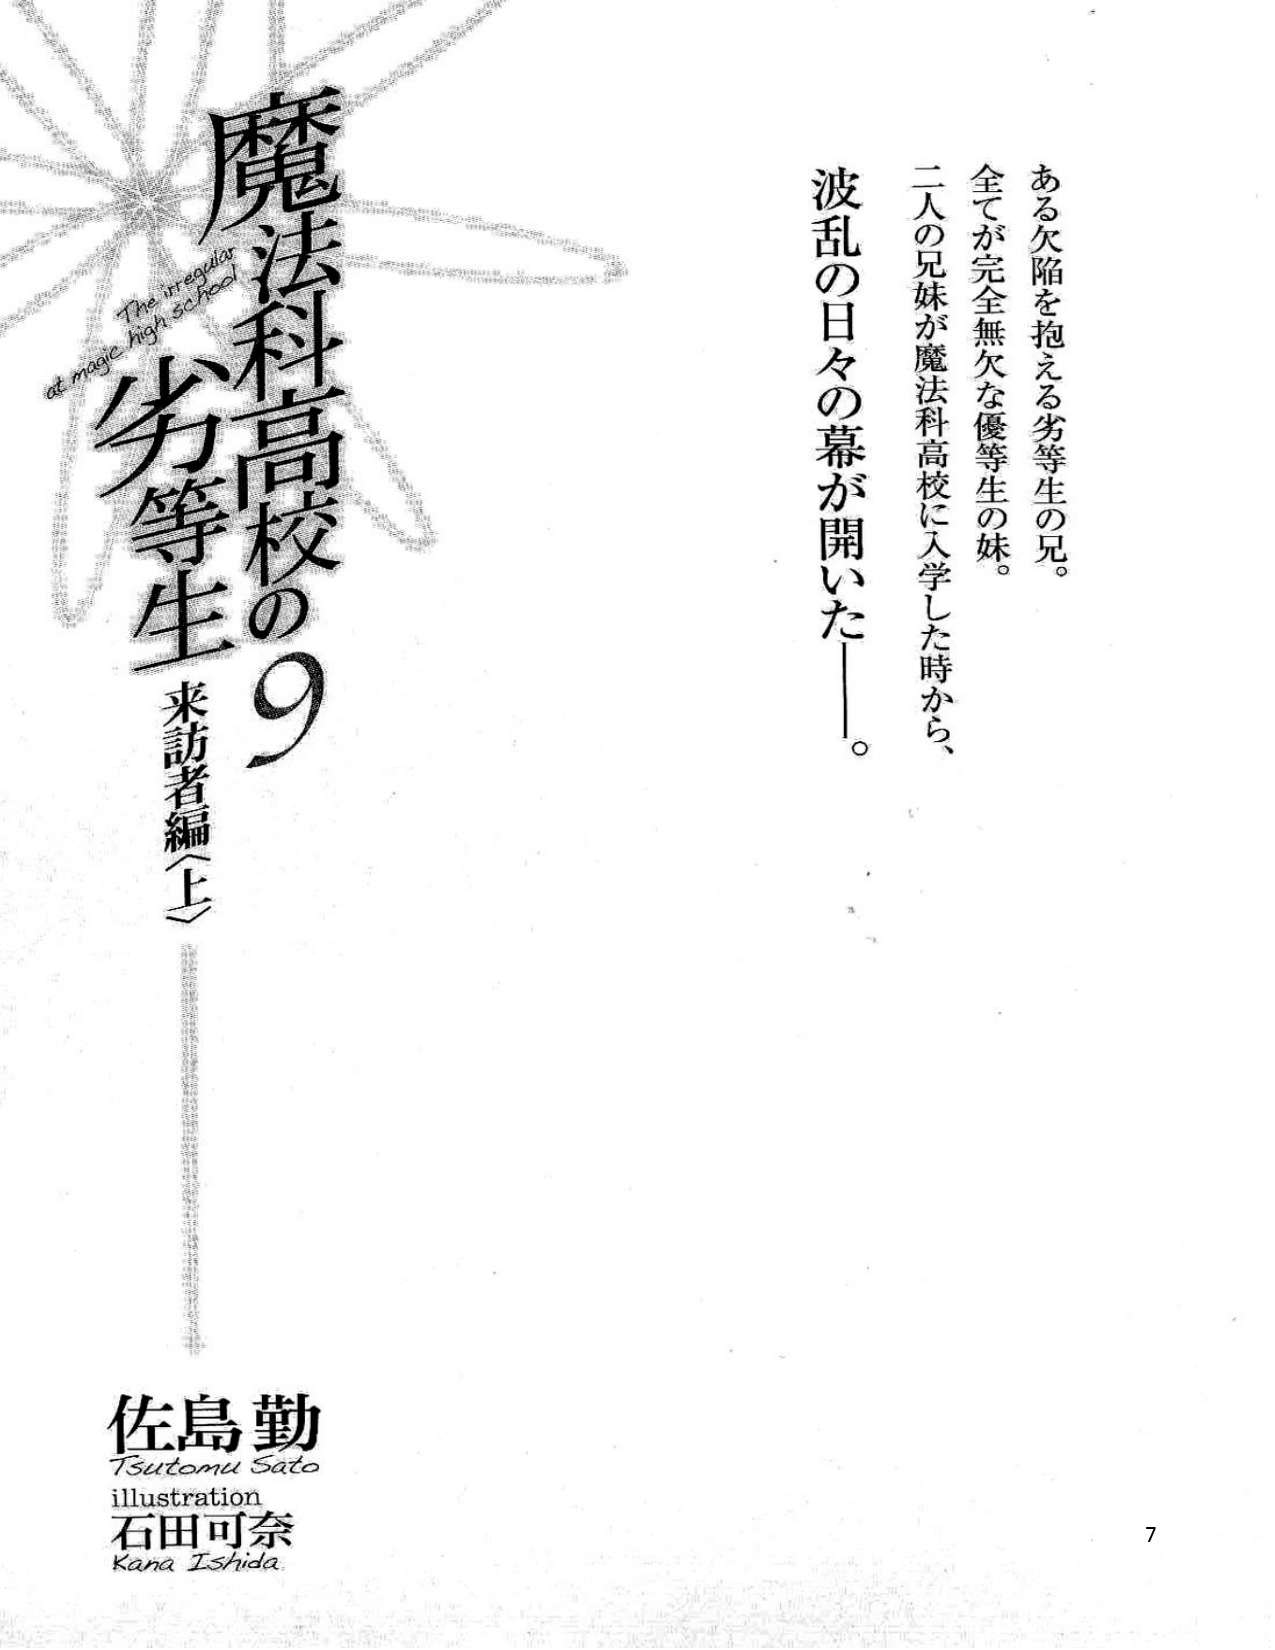 ある欠陥を抱える劣等生の兄。
全てが完全無欠な優等生の妹。
二人の兄妹が魔法科高校に入学した時から、
波乱の日々の幕が開いた――。
魔法科高校の
劣等生
9
The irregular
at magic high school
来訪者編〈上〉
佐島 勤
Tsutomu Sato
illustration
石田可奈
Kana Ishida
7